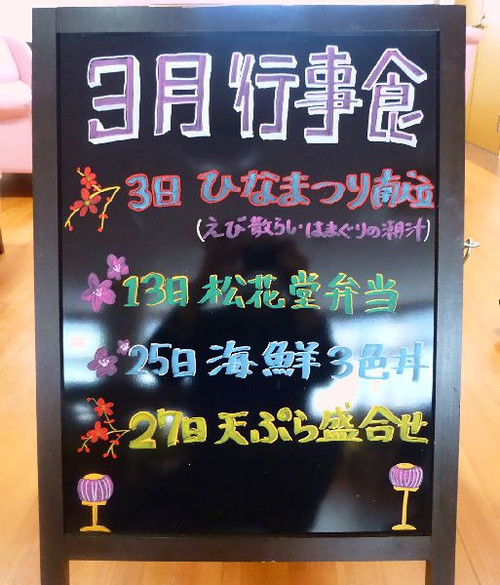 3月行事食
3日 ひなまつり献立
(えび散らし・はまぐりの潮汁)
13日 松花堂弁当
25日 海鮮3色丼
27日 天ぷら盛合せ